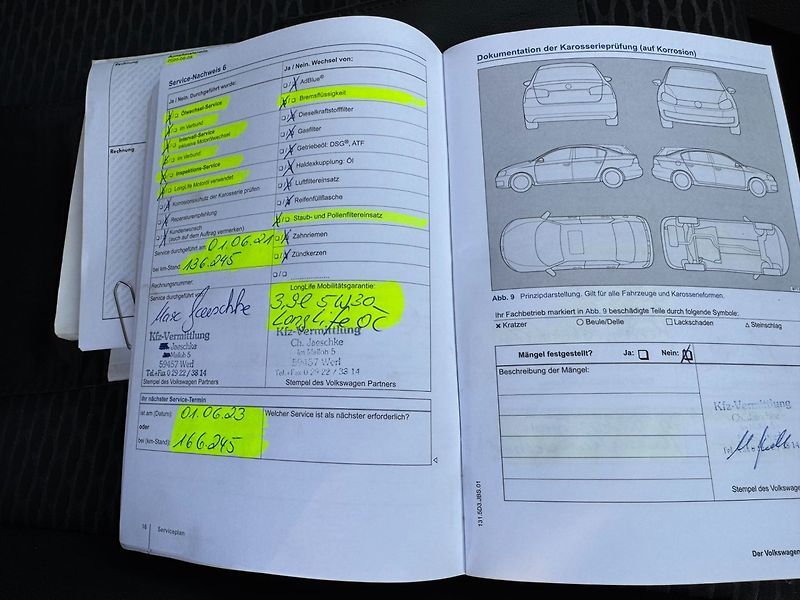 Rechnung
Service-Nachweis 6
Ja / Nein. Durchgeführt wurde:
Ölwechsel-Service
im Verbund
Intervall-Service
inklusive Motorölwechsel
im Verbund
Inspektions-Service
LongLife Motoröl verwendet
Korrosionsschutz der Karosserie prüfen
Reparaturempfehlung
Kundenwunsch
(auch auf dem Auftrag vermerken)
Service durchgeführt am: 01.06.21
bei km-Stand: 136.245
Rechnungsnummer:
Service durchgeführt von:
Kfz-Vermittlung
Jaeschke
59457 Werl
Tel.+Fax 0 29 22 / 38 14
Stempel des Volkswagen Partners
Ja / Nein. Wechsel von:
AdBlue®
Bremsflüssigkeit
Dieselkraftstofffilter
Gasfilter
Getriebeöl: DSG®, ATF
Haldexkupplung: Öl
Luftfiltereinsatz
Reifenfüllflasche
Staub- und Pollenfiltereinsatz
Zahnriemen
Zündkerzen
LongLife Mobilitätsgarantie:
3,9l 5W30
LongLife Öl
Kfz-Vermittlung
Ch. Jaeschke
59457 Werl
Tel.+Fax 0 29 22 / 38 14
Stempel des Volkswagen Partners
Ihr nächster Service-Termin
ist am (Datum): 01.06.23
oder
bei (km-Stand): 166.245
Welcher Service ist als nächster erforderlich?
16
Serviceplan
Dokumentation der Karosserieprüfung (auf Korrosion)
Abb. 9 Prinzipdarstellung. Gilt für alle Fahrzeuge und Karosserieformen.
Ihr Fachbetrieb markiert in Abb. 9 beschädigte Teile durch folgende Symbole:
Kratzer
Beule/Delle
Lackschaden
Steinschlag
Mängel festgestellt? Ja: Nein:
Beschreibung der Mängel:
Kfz-Vermittlung
Stempel des Volkswagen
131.5D3.JBS.01
Der Volkswagen